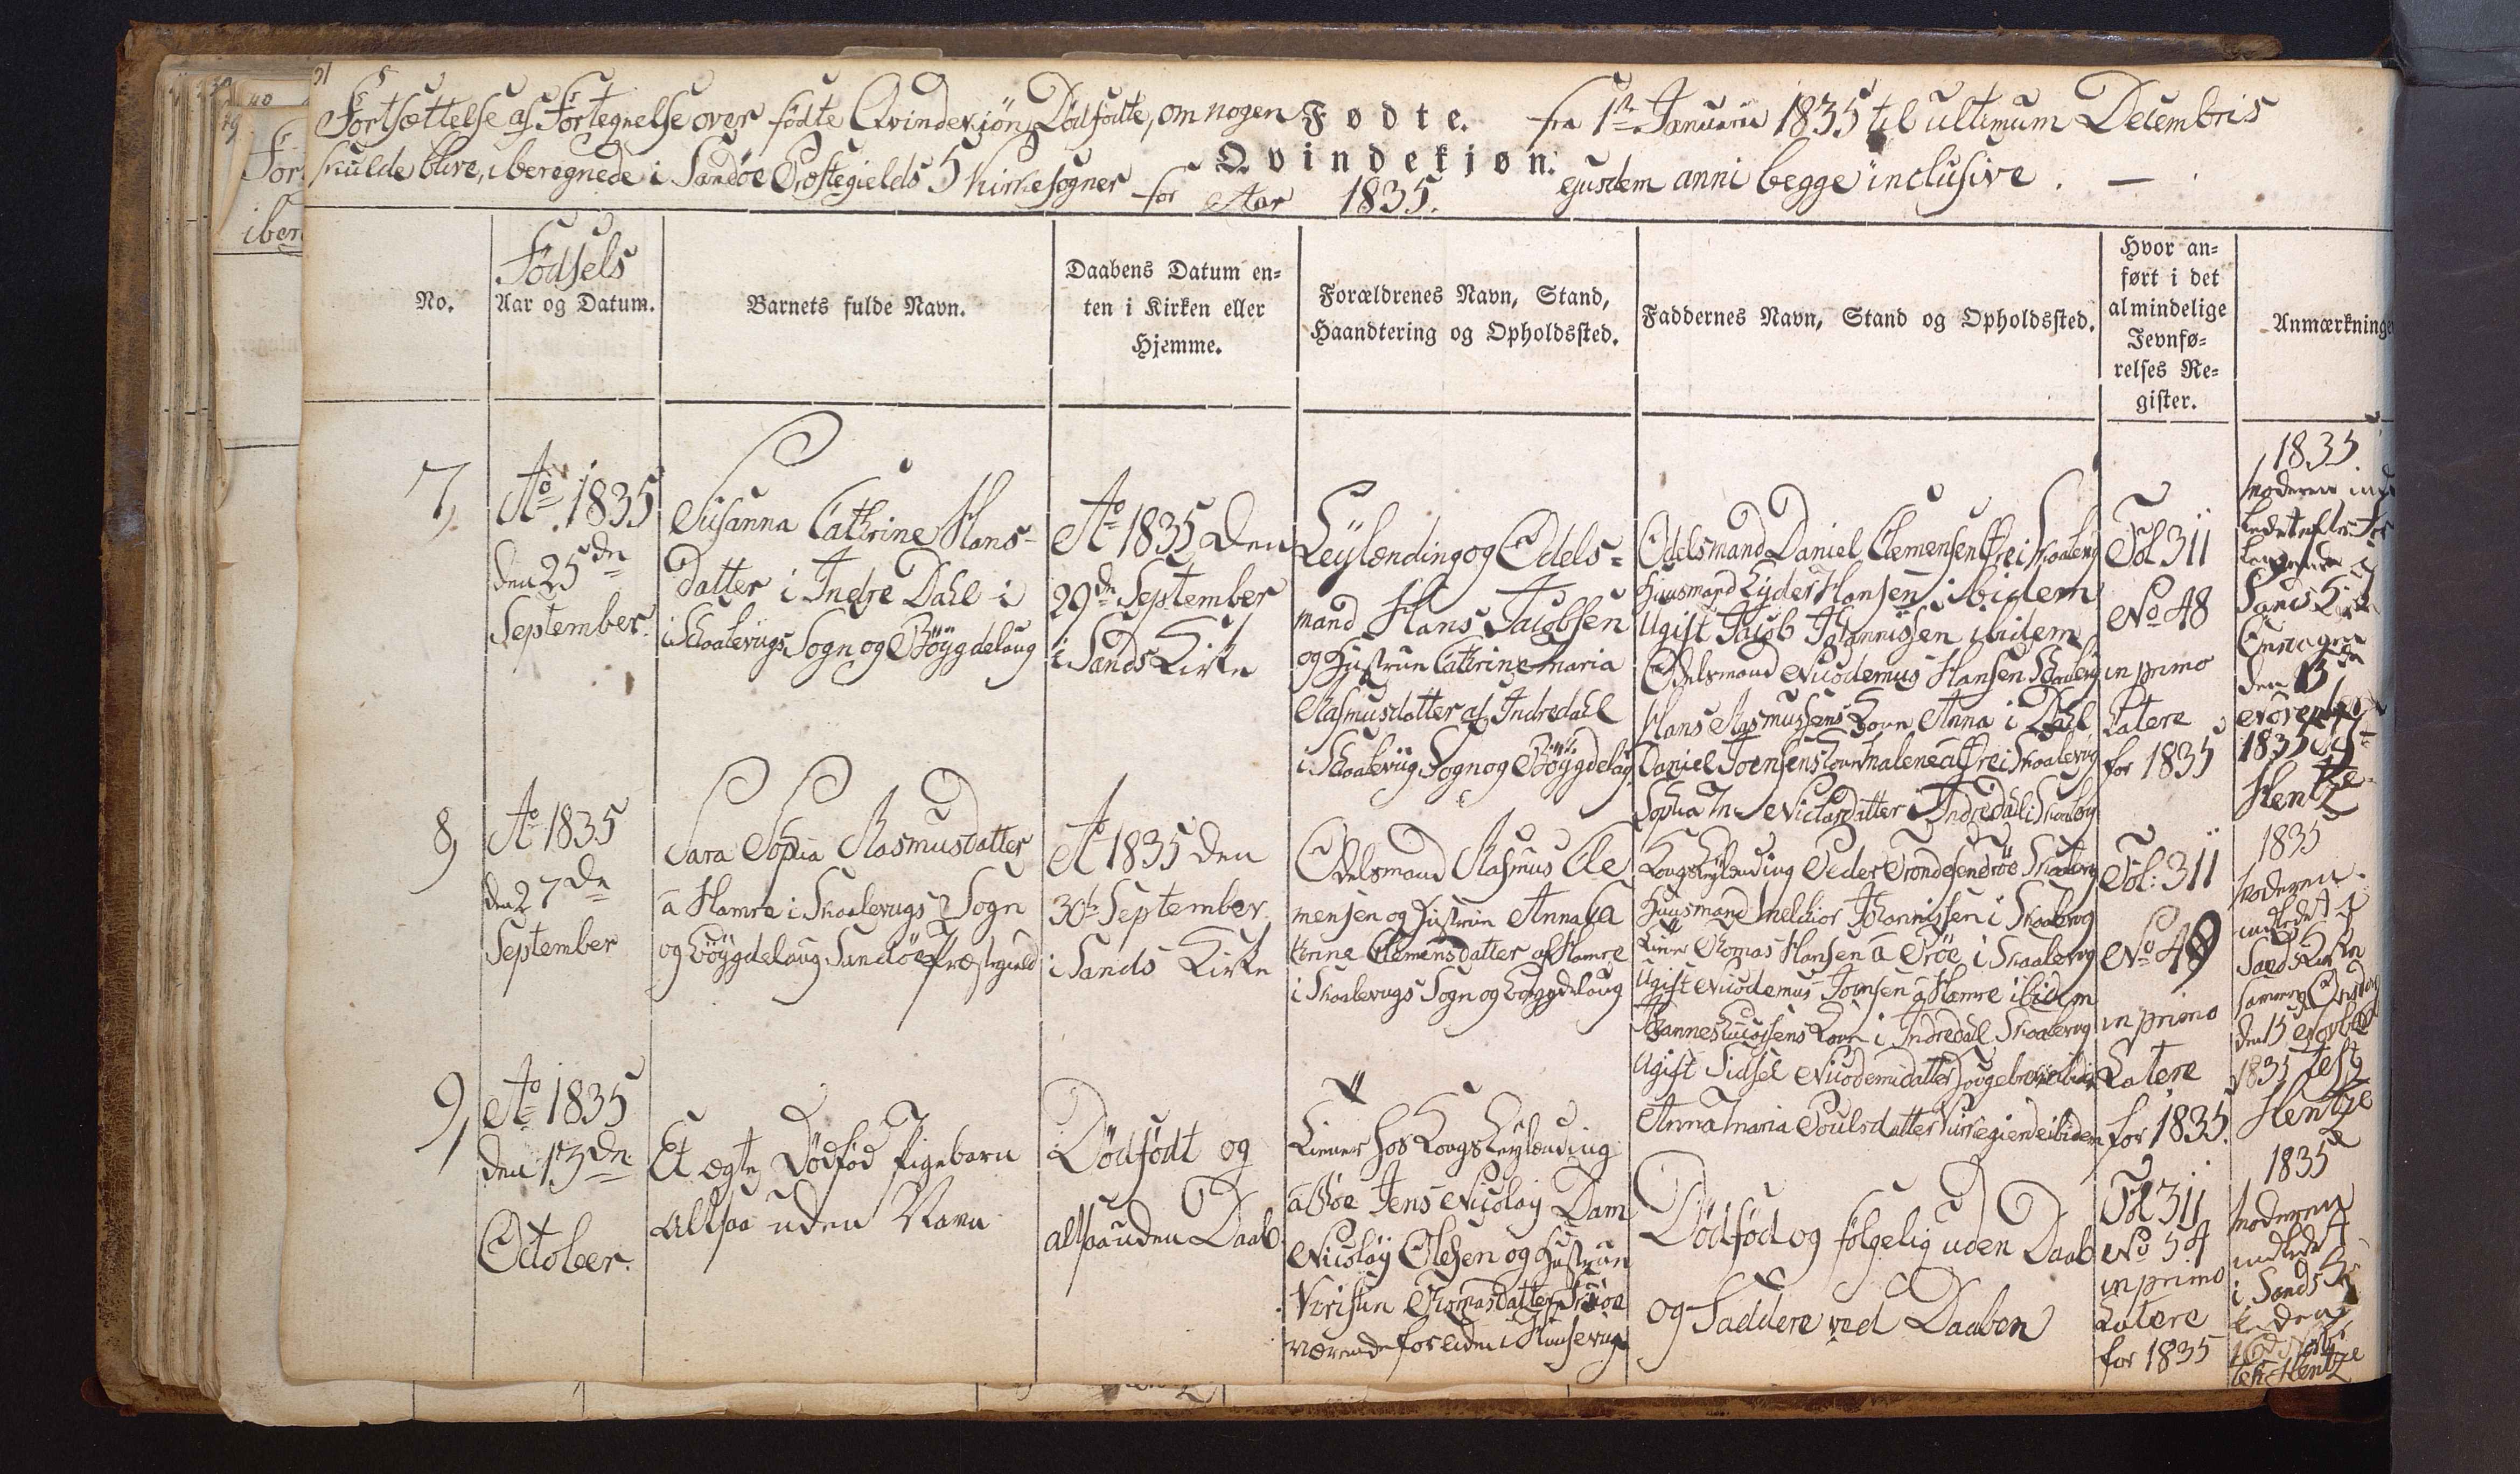 Fortsættelse af Fortegnelse over fødte Qvindekjøn, Dødfødte, om nogen
skulde blive, iberegnede i Sandøe Præstegields 5 Kirkesogner for Aar 1835.
Fødte.
Qvindekjøn.
fra 1ste Januarii 1835 til ultimum Decembris
ejusdem anni begge inclusive. —
No.
Fødsels
Aar og Datum.
Barnets fulde Navn.
Daabens Datum en-
ten i Kirken eller
Hjemme.
Forældrenes Navn, Stand,
Haandtering og Opholdssted.
Faddernes Navn, Stand og Opholdssted.
Hvor an-
ført i det
almindelige
Jevnfø-
relses Re-
gister.
Anmærkninge
7,
Ao 1835
den 25de
September.
Susanna Cathrine Hans-
datter i Indre Dahl i
i Skaalevigs Sogn og Böygdelaug
Ao 1835 den
29de September
i Sands Kirke
Leylænding og Odels-
mand Hans Jacobsen
og Hustrue Cathrine Maria
Rasmusdatter af Indredahl
i Skaalevig Sogn og Böygdelag
Odelsmand Daniel Clemensen
Huusmand Hansen ibidem
Ugift Jacob Johannissen ibidem
Odelsmand Nicodemus Hansen
Hans Rasmussens Kone Anna i Dahl
Daniel Joensens Kone Malene
Sophia
Fol 311
No 48
in primo
Latere
for 1835
1835
Moderen
Sands
den 15de
November
1835
Hentze
8,
Ao 1835
den 27de
September
Sara Sophia Rasmusdatter
a Hamre i Skaalevigs Sogn
og Böygdelaug Sandöe Præstegield
Ao 1835 den
30te September
i Sands Kirke
Odelsmand Rasmus Cle
mensen og Hustrue Anna Ca
thrine Clemensdatter af Hamre
i Skaalevigs Sogn og Böygdelaug
Kongsleylænding Peder
Huusmand Melchior Johannissen i Skaalevig
Thomas Hansen a Tröe i Skaalevig
Ugift Nicodemus Joensen a Hamre ibidem
Kone i Indredahl Skaalevig
Ugift Sidsel Nicodemidatter
Anna Maria Poulsdatter ibidem
Fol: 311
No 49
in primo
Latere
for 1835.
1835
Moderen
indledet i
Sands Kirke
den 15 Novbr
1835 test
Hentze
9,
Ao 1835
den 13de
October.
Et ægte Dødfød Pigebarn
altsaa uden Navn
Dødfødt og
altsaa uden Daab
hos Kongsleylænding
Jens Nicolay Dam
Nicolay Olesen og Hustrue
Thomasdatter
Dødfød og følgelig uden Daab
og Faddere ved Daaben
Fol 311
No 54
in primo
Latere
for 1835
1835
Moderen
indledet
i Sands Kir
ke den
test Hentze